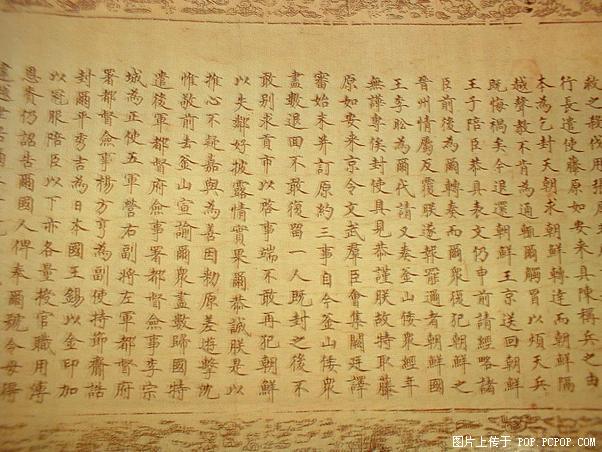 救之殺伐用張
行長遣使藤原如安來具陳稱兵之由
本為乞封天朝求朝鮮轉達而朝鮮隔
越聲教不肯為通輒爾觸冒以煩天兵
既悔禍矣今退還朝鮮王京送回朝鮮
王子陪臣恭具表文仍申前請經略諸
臣前後為爾轉奏而爾眾復犯朝鮮之
晉州情屬反覆朕遂報罷邇者朝鮮國
王李昖為爾代請又奏釜山倭眾經年
無譁專俟封使具見恭謹朕故特取藤
原如安來京令文武羣臣會集闕廷譯
審始末并訂原約三事自今釜山倭眾
盡數退回不敢復留一人既封之後不
敢別求貢市以啓事端不敢再犯朝鮮
以失鄰好披露情實果爾恭誠朕是以
推心不疑嘉與為善因勑原差遊擊沈
惟敬前去釜山宣諭爾眾盡數歸國特
遣後軍都督府僉事署都督僉事李宗
城為正使五軍營右副將左軍都督府
署都督僉事楊方亨為副使持節齎誥
封爾平秀吉為日本國王錫以金印加
以冠服陪臣以下亦各量授官職用薄
恩賚仍詔告爾國人俾奉爾號令毋得
图片上传于 POP.PCPOP.COM